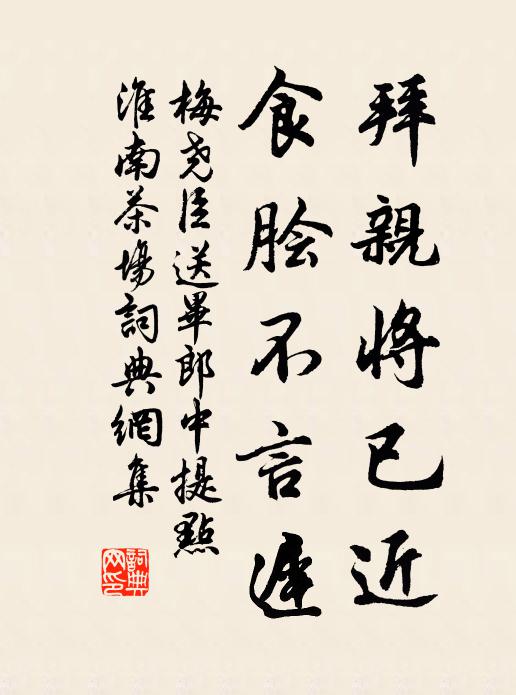 拜親將已近
食脍不言遲
梅尧臣送畢郎中提點
淮南茶場詞典網集
詞典
网印